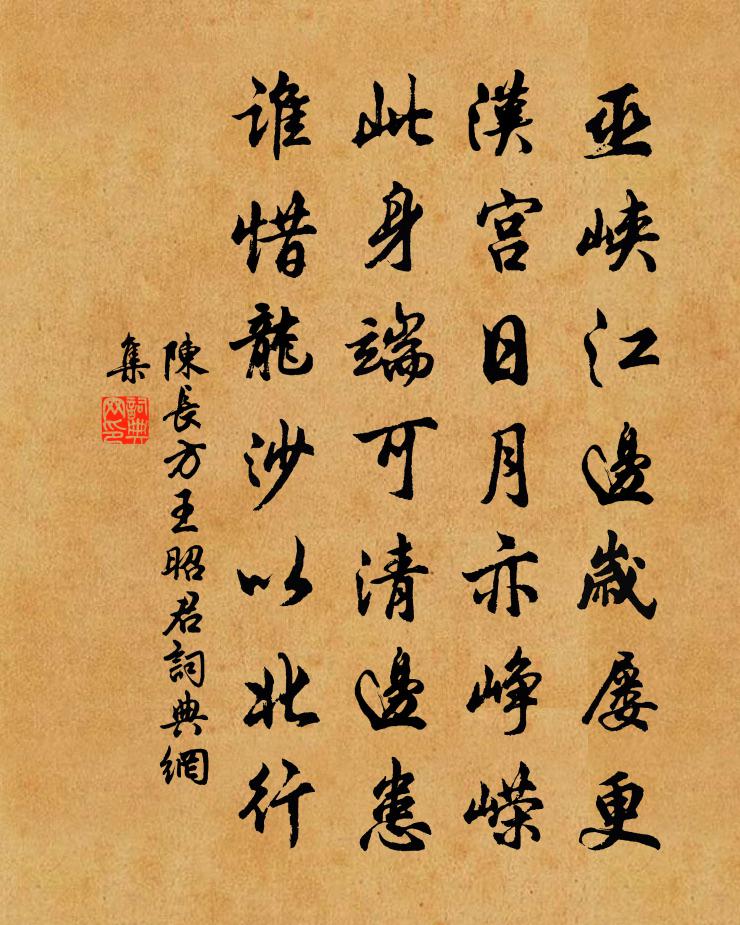 巫峽江邊歲屢更
漢宮日月亦崢嶸
此身端可清邊患
誰惜龍沙以北行
陳長方王昭君詞典網
集
詞典網印